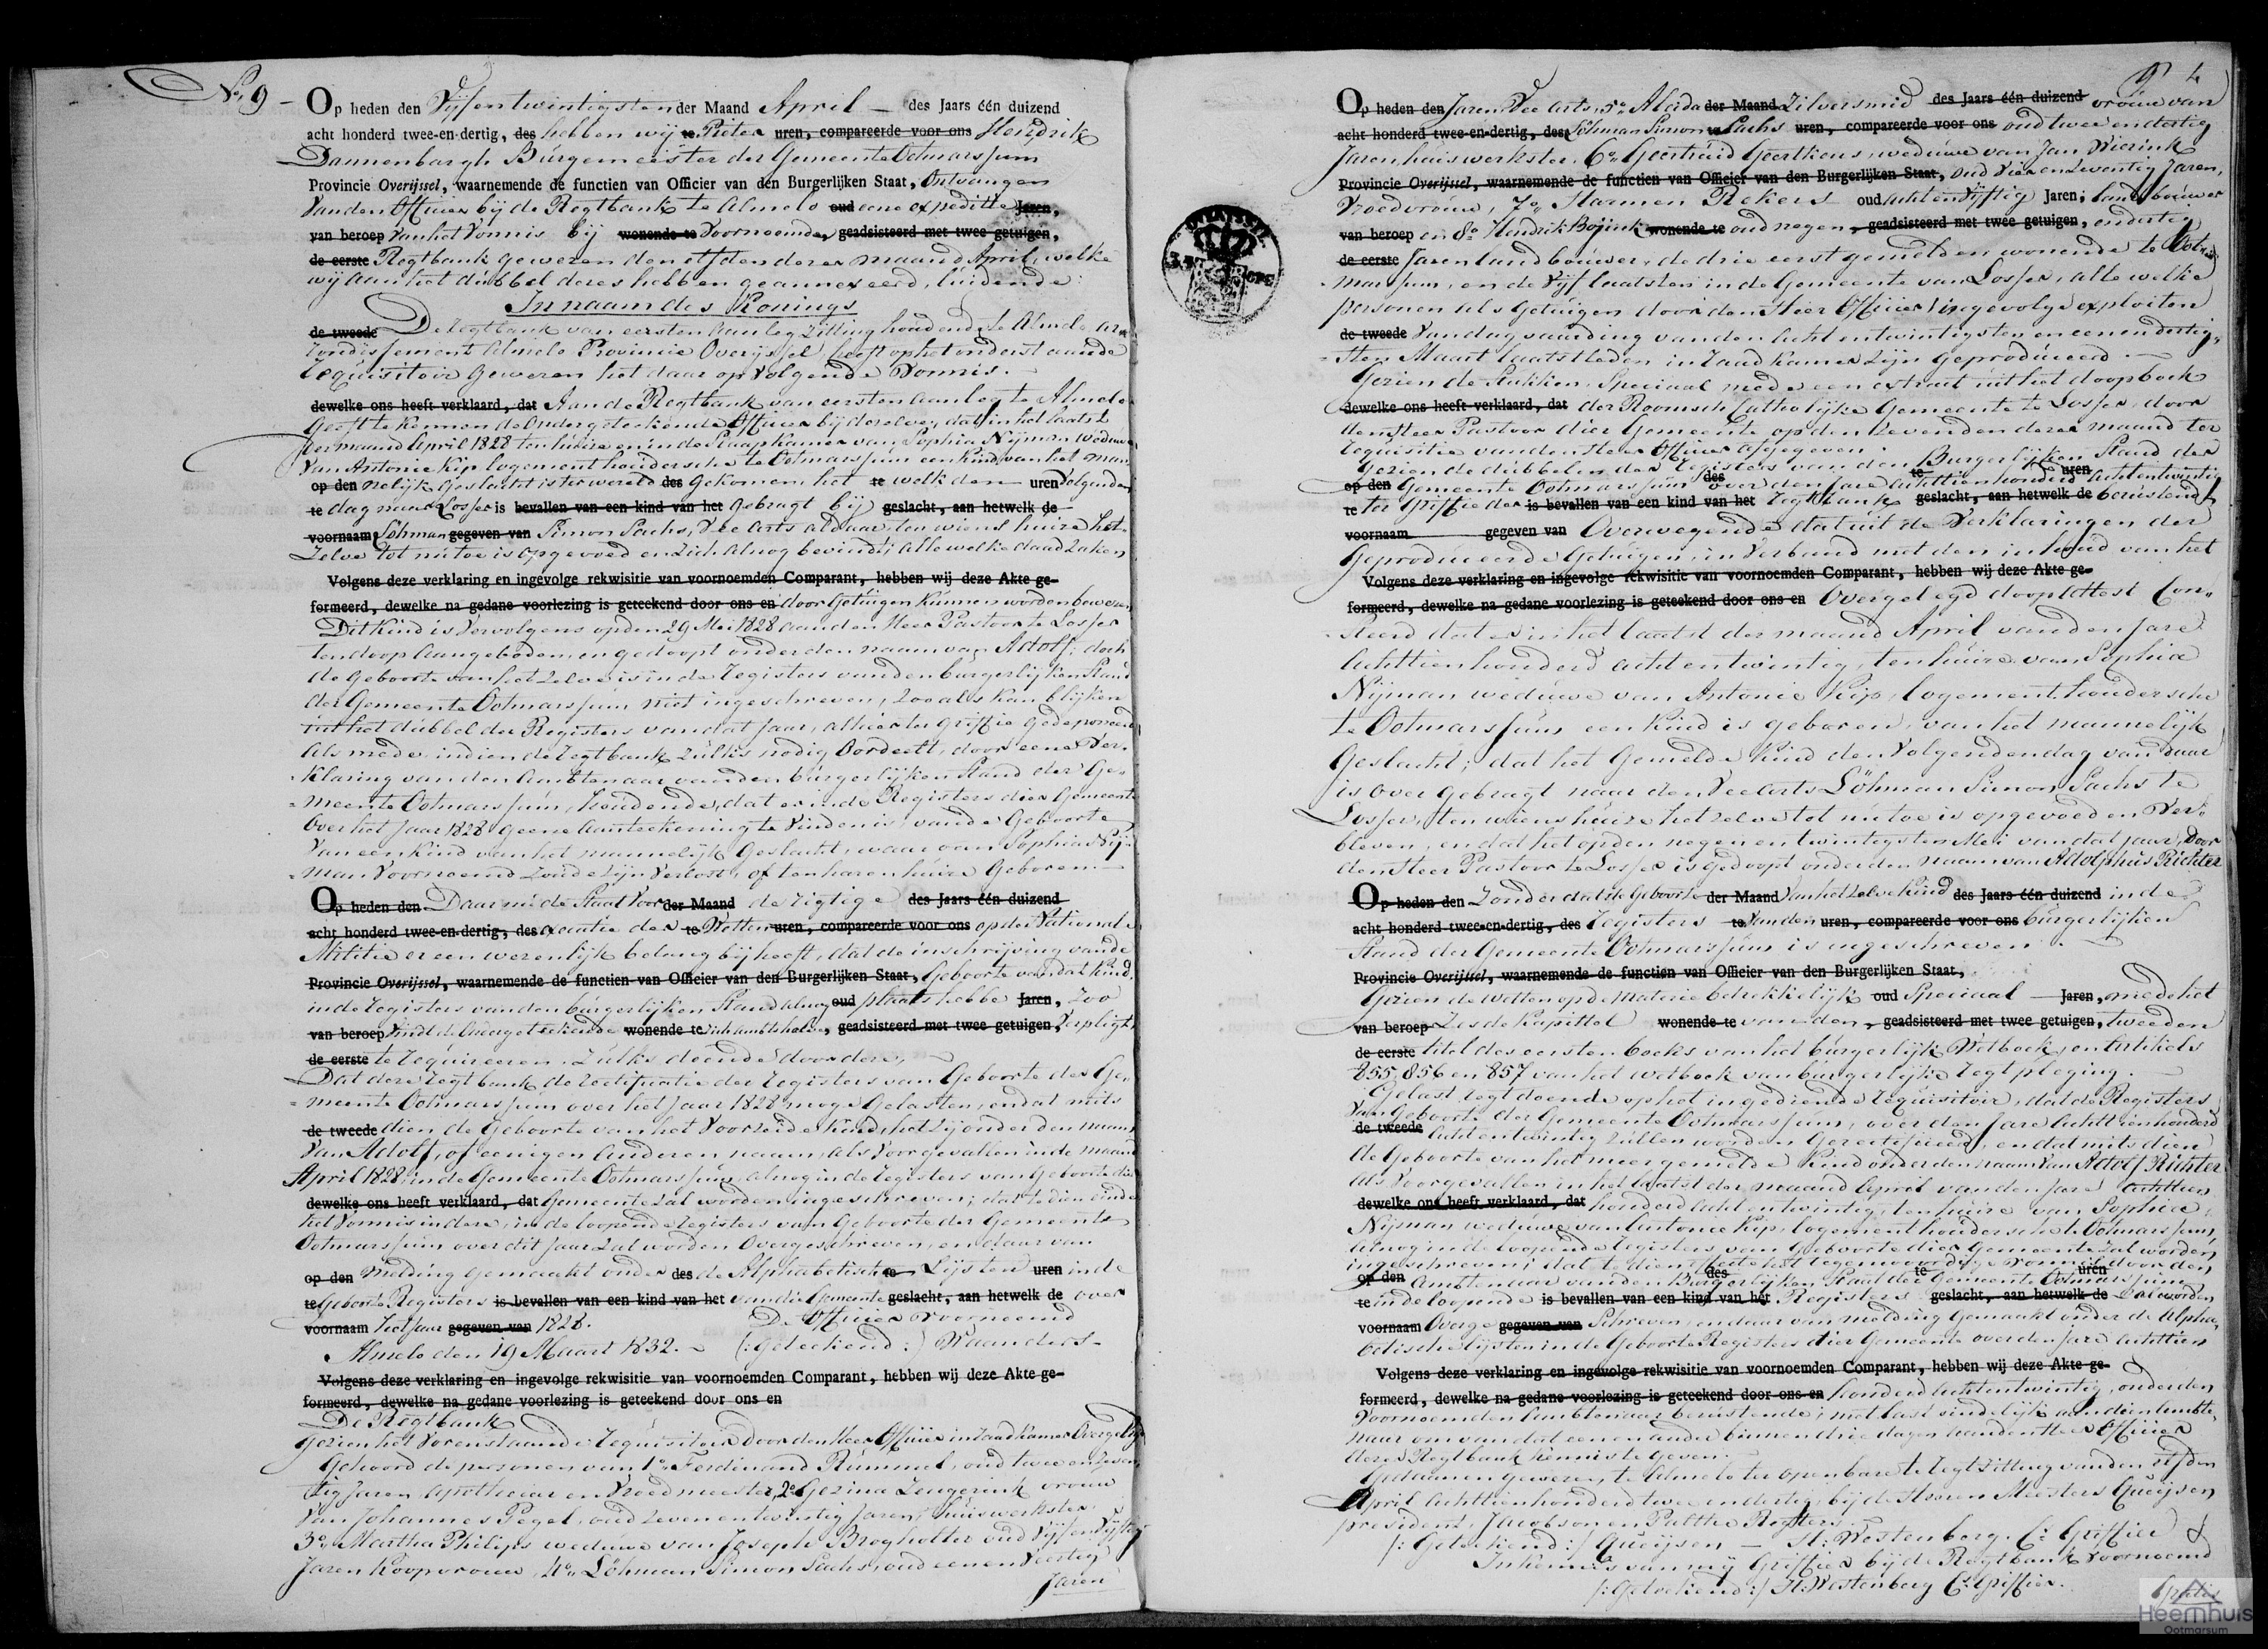 No 9 - Op heden den Vijfentwintigsten der Maand April - des Jaars één duizend
acht honderd twee-en-dertig, des hebben wij te Pieter uren, compareerde voor ons Hendrik
Dannenbargh Burgemeester der Gemeente Ootmarssum
Provincie Overijssel, waarnemende de functien van Officier van den Burgerlijken Staat, Ontvangen
van den Officier bij de Regtbank te Almelo oud eene expeditie Jaren,
van beroep van het Vonnis bij wonende te voornoemde, geadsisteerd met twee getuigen,
de eerste Regtbank gewezen den elfden dezer maand April, welke
wij aan het dubbel dezes hebben geannexeerd, luidende:
In naam des Konings
de tweede De Regtbank van eersten Aanleg Zitting houdende te Almelo, ar-
rondissement Almelo Provincie Overijssel heeft op het onderstaande
requisitoir gewezen het daar op volgende Vonnis.
dewelke ons heeft verklaard, dat Aan de Regtbank van eersten aanleg te Almelo
Geeft te kennen de ondergeteekende Officier bij dezelve, dat in het laatst
der maand April 1828 ten huize en in de Slaapkamer van Sophia Nijman weduwe
van Antonie Kip logementhoudersche te Ootmarssum een kind van het man-
op den nelijk geslacht is ter wereld des gekomen, het te welk den uren volgenden
te dag naar Losser is bevallen van een kind van het gebragt bij geslacht, aan hetwelk de
voornaam Löhman gegeven van Simon Sachs, Vee arts aldaar, ten wiens huize het-
zelve tot nu toe is opgevoed en zich alnog bevindt; alle welke daadzaken
Volgens deze verklaring en ingevolge rekwisitie van voornoemden Comparant, hebben wij deze Akte ge-
formeerd, dewelke na gedane voorlezing is geteekend door ons en door Getuigen kunnen worden bewezen
Dit kind is vervolgens op den 29 Mei 1828 aan den Heer Pastoor te Losser
ten doop aangeboden, en gedoopt onder den naam van Adolf; doch
de geboorte van hetzelve is in de registers van den burgerlijken Stand
der Gemeente Ootmarssum niet ingeschreven, zooals kan blijken
uit het dubbel der Registers van dat Jaar, alhier ter Griffie gedeponeerd
als mede indien de regtbank zulks nodig oordeelt, door eene Ver-
klaring van den Ambtenaar van den burgerlijken Stand der Ge-
meente Ootmarssum, houdende, dat er in de Registers dier Gemeente
over het Jaar 1828 geene aanteekening te vinden is, van de Geboorte
van een kind van het mannelijk Geslacht, waar van Sophia Nij-
man voornoemd zoude zijn verlost, of ten haren huize geboren.
Op heden den Daar nu de Staat voor der Maand de rigtige des Jaars één duizend
acht honderd twee-en-dertig, des executie der te Wetten uren, compareerde voor ons op de Nationale
Militie er een wezenlijk belang bij heeft, dat de inschrijving van de
Provincie Overijssel, waarnemende de functien van Officier van den Burgerlijken Staat, Geboorte van dat Kind
in de registers van den burgerlijken Stand alnog oud plaats hebbe Jaren, zoo
van beroep vind de Ondergeteekende wonende te zich ambtshalve, geadsisteerd met twee getuigen, verpligt
de eerste te requireeren, zulks doende door deze,
Dat deze regtbank de rectificatie der registers van Geboorte der Ge-
meente Ootmarssum over het Jaar 1828 moge Gelasten, en dat mits
de tweede dien de Geboorte van het voorzeide Kind, het zij onder den naam
van Adolf, of eenigen anderen naam, als voorgevallen in de maand
April 1828 in de Gemeente Ootmarssum, alnog in de registers van Geboorte dier
dewelke ons heeft verklaard, dat Gemeente zal worden ingeschreven; dat te dien einde
het Vonnis in deze, in de loopende registers van Geboorte der Gemeente
Ootmarssum over dit Jaar zal worden Overgeschreven, en daar van
op den melding gemaakt onder des de Alphabetische te Lijsten uren in de
te Geboorte Registers is bevallen van een kind van het van die Gemeente geslacht, aan hetwelk de over
voornaam het Jaar gegeven van 1828. De Officier voornoemd
Almelo den 19 Maart 1832. (:geteekend:) Waanders
Volgens deze verklaring en ingevolge rekwisitie van voornoemden Comparant, hebben wij deze Akte ge-
formeerd, dewelke na gedane voorlezing is geteekend door ons en
De Regtbank
Gezien het vorenstaande requisitoir door den Heer Officier in raadkamer Overgelegd
Gehoord de personen van 1o Ferdinand Rummel, oud twee en zeven-
tig Jaren Apothecar en Vroedmeester, 2o Gezina Zeugerink vrouw
van Johannes Pegel, oud zeven en twintig Jaren, huiswerkster,
3o Martha Philips weduwe van Joseph Broghotter oud vijf en vijftig
Jaren koopvrouw, 4o Löhman Simon Sachs, oud een en veertig
Jaren
9 4
Op heden den Jaren Vee arts, 5o Alerda der Maand Zilversmid des Jaars één duizend vrouw van
acht honderd twee-en-dertig, des Löhman Simon te Sachs uren, compareerde voor ons oud twee en dertig
Jaren huiswerkster, 6o Geertruid Geertkens, weduwe van Jan Wierink
Provincie Overijssel, waarnemende de functien van Officier van den Burgerlijken Staat, oud vier en zeventig Jaren,
Vroedvrouw, 7o Harmen Rekers oud acht en vijftig Jaren, landbouwer
van beroep en 8o Hendrik Bojink wonende te oud negen, geadsisteerd met twee getuigen, en dertig
de eerste Jaren landbouwer, de drie eerstgemelden wonende te Oot-
marssum, en de vijf laatsten in de Gemeente van Losser, alle welke
personen als Getuigen door den Heer Officier ingevolge exploiten
de tweede van dagvaarding van den acht en twintigsten en een en dertig-
sten Maart laatstleden in raadkamer zijn geproduceerd.
Gezien de Stukken, Speciaal mede een extract uit het doopboek
dewelke ons heeft verklaard, dat der Roomsch Catholijke Gemeente te Losser, door
den Heer Pastoor dier Gemeente op den zevenden dezer maand ter
requisitie van den Heer Officier afgegeven.
Gezien de dubbelen der registers van den Burgerlijken Stand der
op den Gemeente Ootmarssum des over den Jare te achttienhonderd uren achtentwintig
te ter Griffie der is bevallen van een kind van het regtbank geslacht, aan hetwelk de berustend
voornaam gegeven van Overwegende dat uit de verklaringen der
geproduceerde Getuigen, in verband met den inhoud van het
Volgens deze verklaring en ingevolge rekwisitie van voornoemden Comparant, hebben wij deze Akte ge-
formeerd, dewelke na gedane voorlezing is geteekend door ons en Overgelegd doopattest Con-
steerd dat er in het laatst der maand April van den Jare
Achttienhonderd acht en twintig, ten huize van Sophia
Nijman weduwe van Antonie Kip, logementhoudersche
te Ootmarssum een kind is geboren, van het mannelijk
geslacht; dat het gemelde kind den volgenden dag van daar
is overgebragt naar den Veearts Löhman Simon Sachs te
Losser, ten wiens huize hetzelve tot nu toe is opgevoed en ver-
bleven, en dat het op den negen en twintigsten Mei van dat jaar, door
den Heer Pastoor te Losser is gedoopt onder den naam van Adolphus Richter
Op heden den Zonder dat de Geboorte der Maand van hetzelve kind des Jaars één duizend in de
acht honderd twee-en-dertig, des registers te van den uren, compareerde voor ons burgerlijken
Stand der Gemeente Ootmarssum is ingeschreven.
Provincie Overijssel, waarnemende de functien van Officier van den Burgerlijken Staat,
Gezien de wetten op de materie betrekkelijk oud Speciaal Jaren, mede het
van beroep Zesde Kapittel wonende te van den, geadsisteerd met twee getuigen, tweeden
de eerste titel des eersten boeks van het burgerlijk Wetboek, en Artikels
855, 856 en 857 van het wetboek van burgerlijke regtpleging.
Gelast, regtdoende op het ingediende requisitoir, dat de Registers
van Geboorte der Gemeente Ootmarssum, over den Jare Achttienhonderd
de tweede acht en twintig zullen worden gerectificeerd, en dat mits dien
de Geboorte van het meergemelde Kind onder den naam van Adolf Richter
als voorgevallen in het laatst der maand April van den Jare achttien
dewelke ons heeft verklaard, dat honderd acht en twintig, ten huize van Sophia
Nijman weduwe van Antonie Kip, logementhoudersche te Ootmarssum,
alnog in de loopende registers van Geboorte dier Gemeente zal worden
ingeschreven; dat te dien effecte het tegenwoordige vonnis door den
op den Ambtenaar van den Burgerlijken des Stand der te Gemeente Ootmarssum uren
te in de loopende is bevallen van een kind van het Registers geslacht, aan hetwelk de zal worden
voornaam Overge gegeven van schreven, en daar van melding gemaakt onder de Alpha-
betische lijsten in de Geboorte Registers dier Gemeente over den Jare achttien
Volgens deze verklaring en ingevolge rekwisitie van voornoemden Comparant, hebben wij deze Akte ge-
formeerd, dewelke na gedane voorlezing is geteekend door ons en honderd acht en twintig, onder den
voornoemden Ambtenaar berustende; met last eindelijk aan dien Ambte-
naar om van dat een en ander binnen drie dagen aan den Heer Officier
dezer Regtbank kennis te geven.
Gedaan en gewezen, te Almelo ter openbare teregtzitting van den elfden
April achttienhonderd twee en dertig, bij de Heeren Meesters Queijsen
president, Jacobson en Palthe Regters.
(: Geteekend:) Queijsen - H: Westenberg. C: Griffier
In kennis van mij Griffier bij de Regtbank voornoemd
(: Geteekend:) H: Westenberg C: Griffier.
Gratis
Heemhuis
Ootmarsum